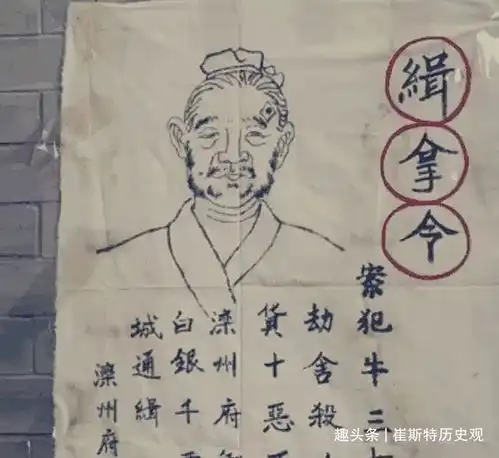 緝拿令
案犯牛二
劫舍殺
貨十惡
滦州府
白銀千
城通緝
滦州府
趣头条 | 崔斯特历史观